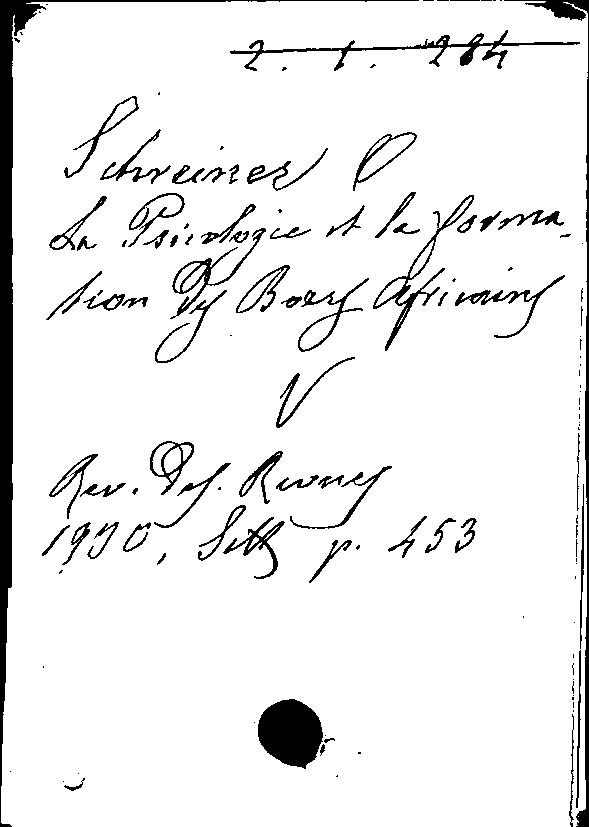 2. 1. 284
Schreiner O
La Psicologie et la forma-
tion des Boers Africains
V
Rev. des. Revues
1900, Sett p. 453